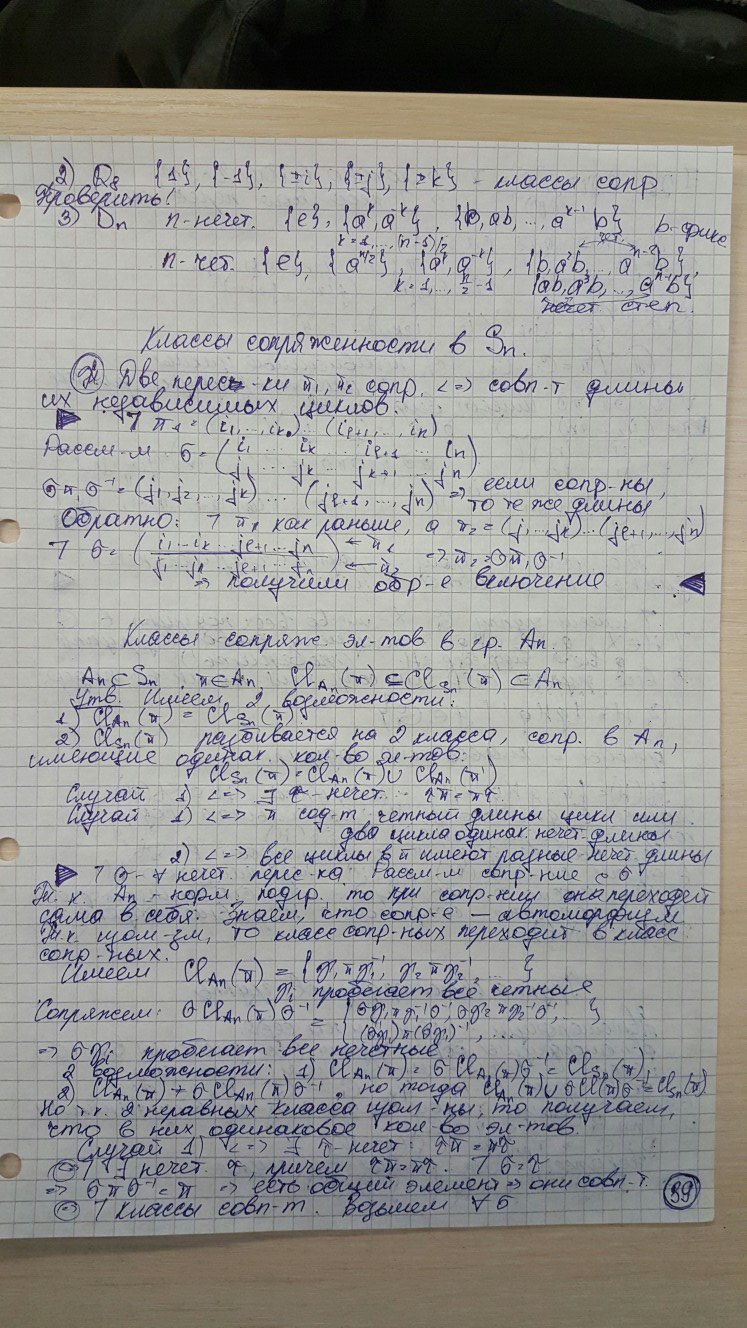 2) Q₈ {1}, {-1}, {±i}, {±j}, {±k} - классы сопр.
Проверить!
3) Dn n-нечет. {e}, {aᵏ, a⁻ᵏ}, {b, ab, ..., aⁿ⁻¹b} b-фикс
k=1,...,(n-1)/2 чет
n-чет. {e}, {a^{n/2}}, {aᵏ, a⁻ᵏ}, {b, a²b, ..., aⁿ⁻²b},
k=1,... n/2 -1 {ab, a³b, ..., aⁿ⁻¹b}
нечет степ.
Классы сопряженности в Sn.
Две перест-ки π₁, π₂ сопр. <=> совп-т длины
их независимых циклов.
▶ ⅂ π₁=(i₁,...,ik)...(il+1,...,in)
Рассм-м σ = (i₁ ... ik ... il+1 ... in
j₁ ... jk ... jk+1 ... jn)
σπ₁σ⁻¹=(j₁,j₂,...,jk) ... (jl+1,...,jn) => если сопр-ны,
то те же длины
Обратно: ⅂ π₁ как раньше, а π₂=(j₁...jk)...(jl+1,...,jn)
⅂ σ=(i₁...ik...jl+1...jn ← π₁
j₁...jk...jl+1...jn) ← π₂ => π₂=σπ₁σ⁻¹
=> получили обр-е включение ◀
Классы сопряж. эл-тов в гр. An.
An⊂Sn π∈An Cl_An(π) ⊆ Cl_Sn(π) ⊂ An
Утв. Имеем 2 возможности:
1) Cl_An(π) = Cl_Sn(π)
2) Cl_Sn(π) разбивается на 2 класса, сопр. в An,
имеющие одинак. кол-во эл-тов:
Cl_Sn(π)=Cl_An(π)∪ Cl_An(π')
Случай 1) <=> ∃ τ-нечет. τπ=πτ
Случай 1) <=> π сод-т четный длины цикл или
два цикла одинак. нечет. длины
2) <=> все циклы в π имеют разные нечет. длины
▶ ⅂ σ-∀ нечет. перест-ка. Рассм-м сопр-ние с σ
Т. к. An - норм. подгр, то при сопр-нии она переходит
сама в себя. Знаем, что сопр-е — автоморфизм
Т.к. изом-зм, то класс сопр-ных переходит в класс
сопр-ных.
Имеем Cl_An(π) = {γ₁πγ₁⁻¹, γ₂πγ₂⁻¹, ...}
γi пробегает все четные
Сопряжем: σCl_An(π)σ⁻¹ = {σγ₁πγ₁⁻¹σ⁻¹, σγ₂πγ₂⁻¹σ⁻¹, ...}
(σγ₁)π(σγ₁)⁻¹, ...
=> σγi пробегает все нечетные
2 возможности: 1) Cl_An(π) = σCl_An(π)σ⁻¹ = Cl_Sn(π)
2) Cl_An(π) ≠ σCl_An(π)σ⁻¹, но тогда Cl_An(π)∪σCl(π)σ⁻¹=Cl_Sn(π)
Но т.к. 2 неравных класса изом-ны, то получаем,
что в них одинаковое кол-во эл-тов.
Случай 1) <=> ∃ τ-нечет: τπ=πτ
⅂ ∃ нечет. τ, причем τπ=πτ. ⅂ σ=τ
=> σπσ⁻¹=π => есть общий элемент => они совп-т.
⅂ классы совп-т. Возьмем ∀ σ
39